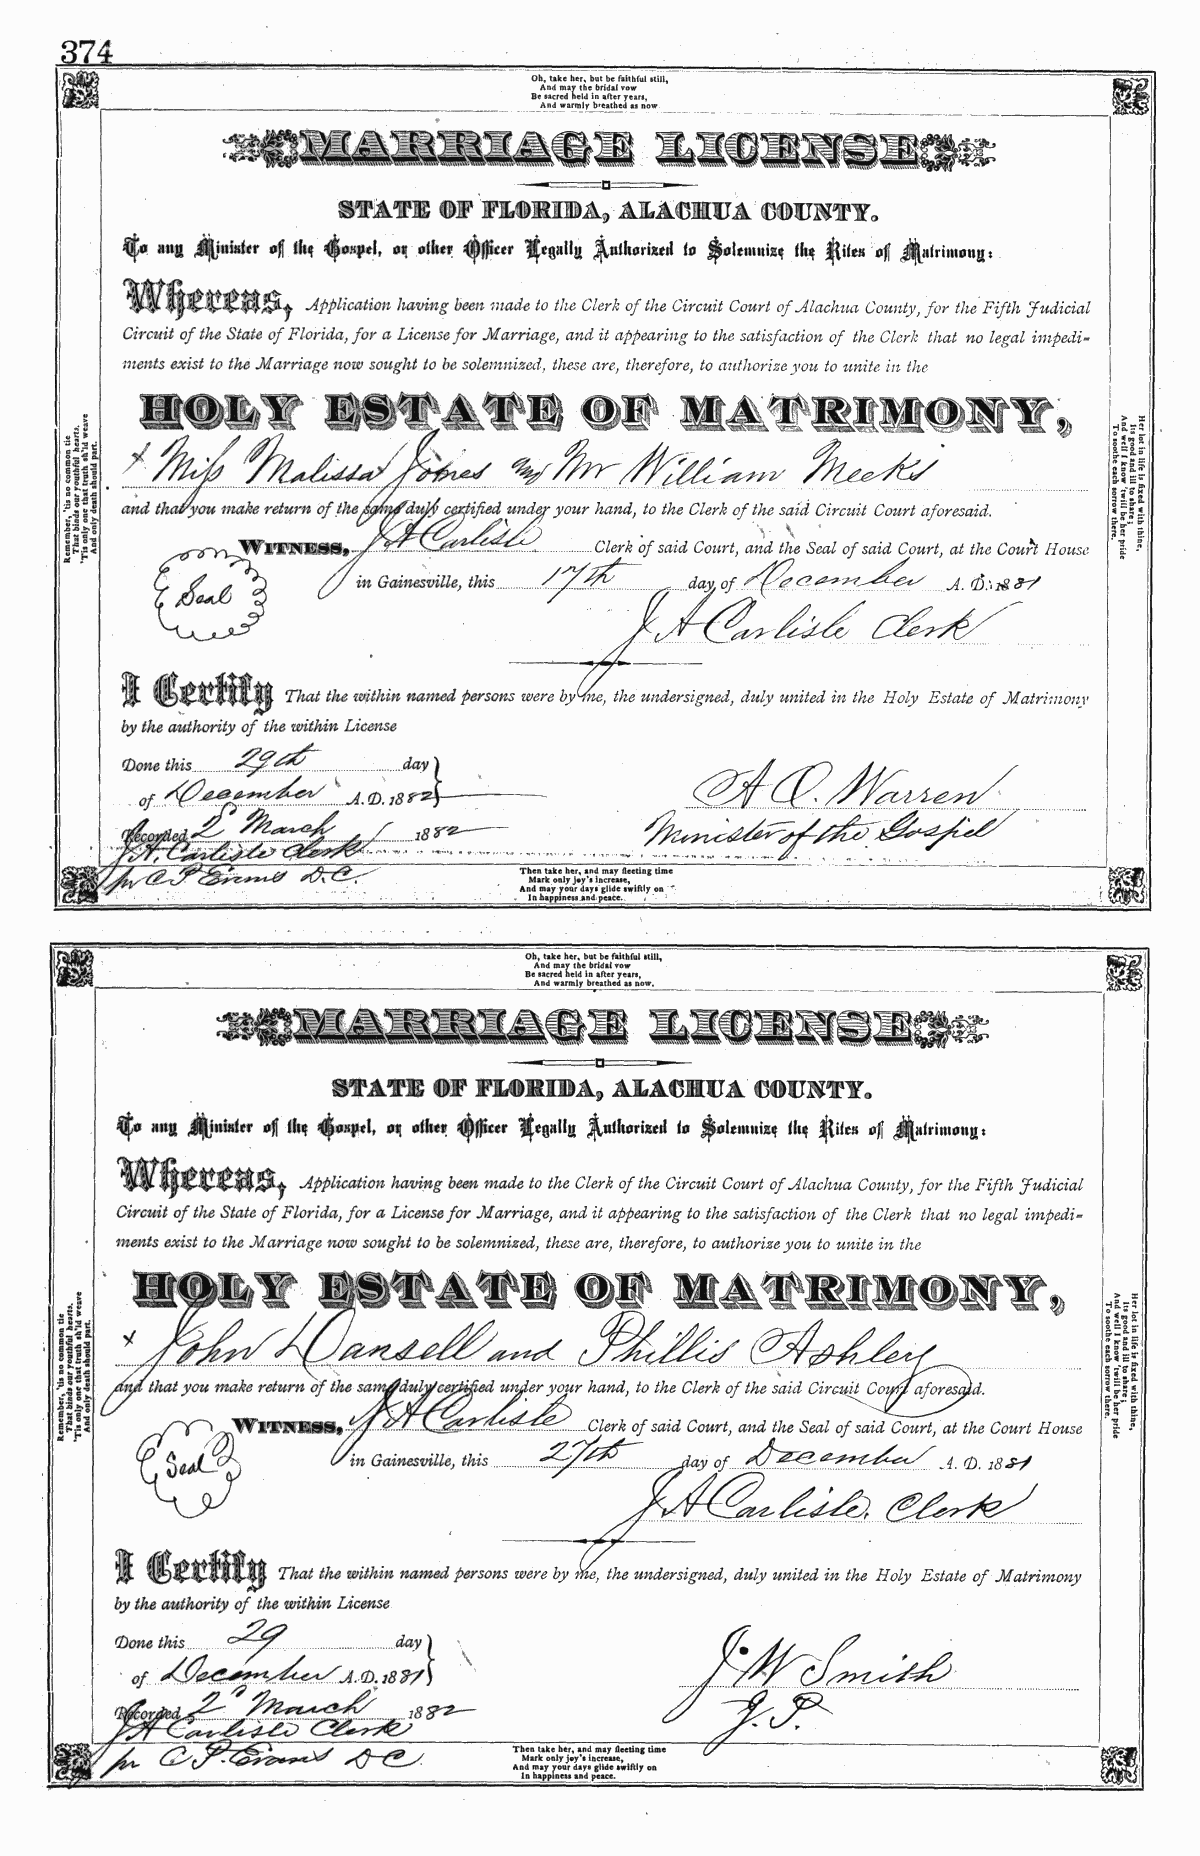 374
Oh, take her, but be faithful still,
And may the bridal vow
Be sacred held in after years,
And warmly breathed as now
MARRIAGE LICENSE
STATE OF FLORIDA, ALACHUA COUNTY.
To any Minister of the Gospel, or other Officer Legally Authorized to Solemnize the Rites of Matrimony:
Whereas, Application having been made to the Clerk of the Circuit Court of Alachua County, for the Fifth Judicial
Circuit of the State of Florida, for a License for Marriage, and it appearing to the satisfaction of the Clerk that no legal impedi-
ments exist to the Marriage now sought to be solemnized, these are, therefore, to authorize you to unite in the
HOLY ESTATE OF MATRIMONY,
x Miss Malissa Jones and Mr William Meeks
and that you make return of the same duly certified under your hand, to the Clerk of the said Circuit Court aforesaid.
WITNESS, J A Carlisle Clerk of said Court, and the Seal of said Court, at the Court House
Seal
in Gainesville, this 17th day of December A. D. 1881
J A Carlisle Clerk
I Certify That the within named persons were by me, the undersigned, duly united in the Holy Estate of Matrimony
by the authority of the within License
Done this 29th day
of December A.D. 1882
A O. Warren
Recorded 2d March 1882
Minister of the Gospel
J. A. Carlisle Clerk
pr C P Evans D.C.
Remember, 'tis no common tie
That binds our youthful hearts,
'Tis only one that truth sh'ld weave
And only death should part.
Her lot in life is fixed with thine,
Its good and ill to share;
And well I know 'twill be her pride
To soothe each sorrow there.
Then take her, and may fleeting time
Mark only joy's increase,
And may your days glide swiftly on
In happiness and peace.
Oh, take her, but be faithful still,
And may the bridal vow
Be sacred held in after years,
And warmly breathed as now.
MARRIAGE LICENSE
STATE OF FLORIDA, ALACHUA COUNTY.
To any Minister of the Gospel, or other Officer Legally Authorized to Solemnize the Rites of Matrimony:
Whereas, Application having been made to the Clerk of the Circuit Court of Alachua County, for the Fifth Judicial
Circuit of the State of Florida, for a License for Marriage, and it appearing to the satisfaction of the Clerk that no legal impedi-
ments exist to the Marriage now sought to be solemnized, these are, therefore, to authorize you to unite in the
HOLY ESTATE OF MATRIMONY,
x John Dansell and Phillis Ashley
and that you make return of the same duly certified under your hand, to the Clerk of the said Circuit Court aforesaid.
WITNESS, J A Carlisle Clerk of said Court, and the Seal of said Court, at the Court House
Seal
in Gainesville, this 27th day of December A. D. 1881
J A Carlisle, Clerk
I Certify That the within named persons were by me, the undersigned, duly united in the Holy Estate of Matrimony
by the authority of the within License
Done this 29 day
of December A.D. 1881
J. W Smith
Recorded 2d March 1882
J. P.
J A Carlisle Clerk
pr C P. Evans D C.
Remember, 'tis no common tie
That binds our youthful hearts,
'Tis only one that truth sh'ld weave
And only death should part.
Her lot in life is fixed with thine,
Its good and ill to share;
And well I know 'twill be her pride
To soothe each sorrow there.
Then take her, and may fleeting time
Mark only joy's increase,
And may your days glide swiftly on
In happiness and peace.